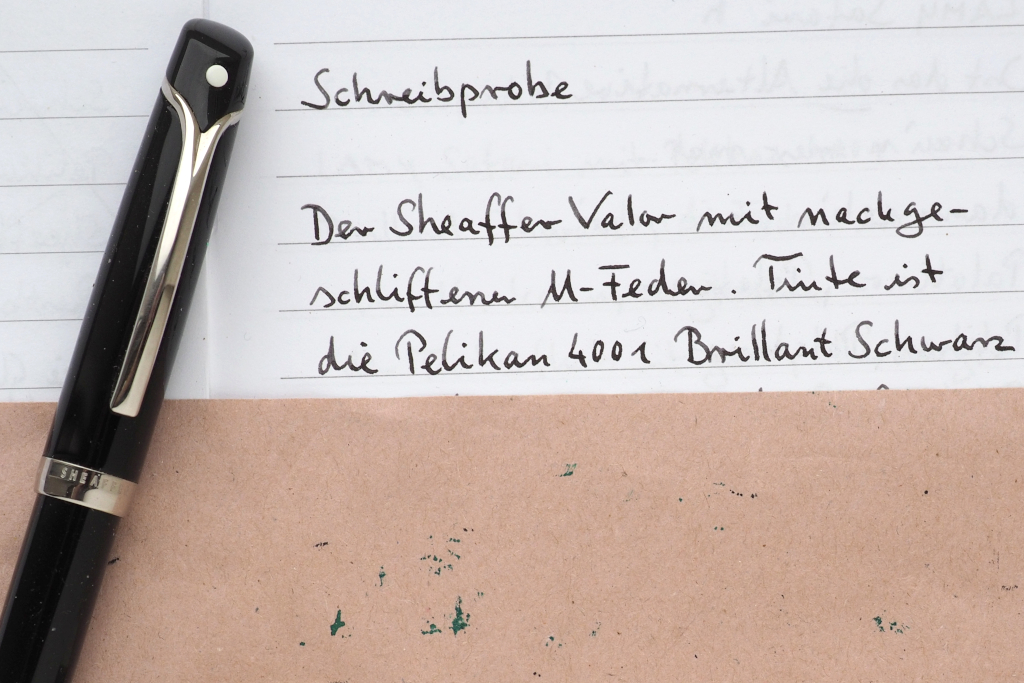 Schreibprobe
Der Sheaffer Valor mit nachge-
schliffener M-Feder. Tinte ist
die Pelikan 4001 Brillant Schwarz